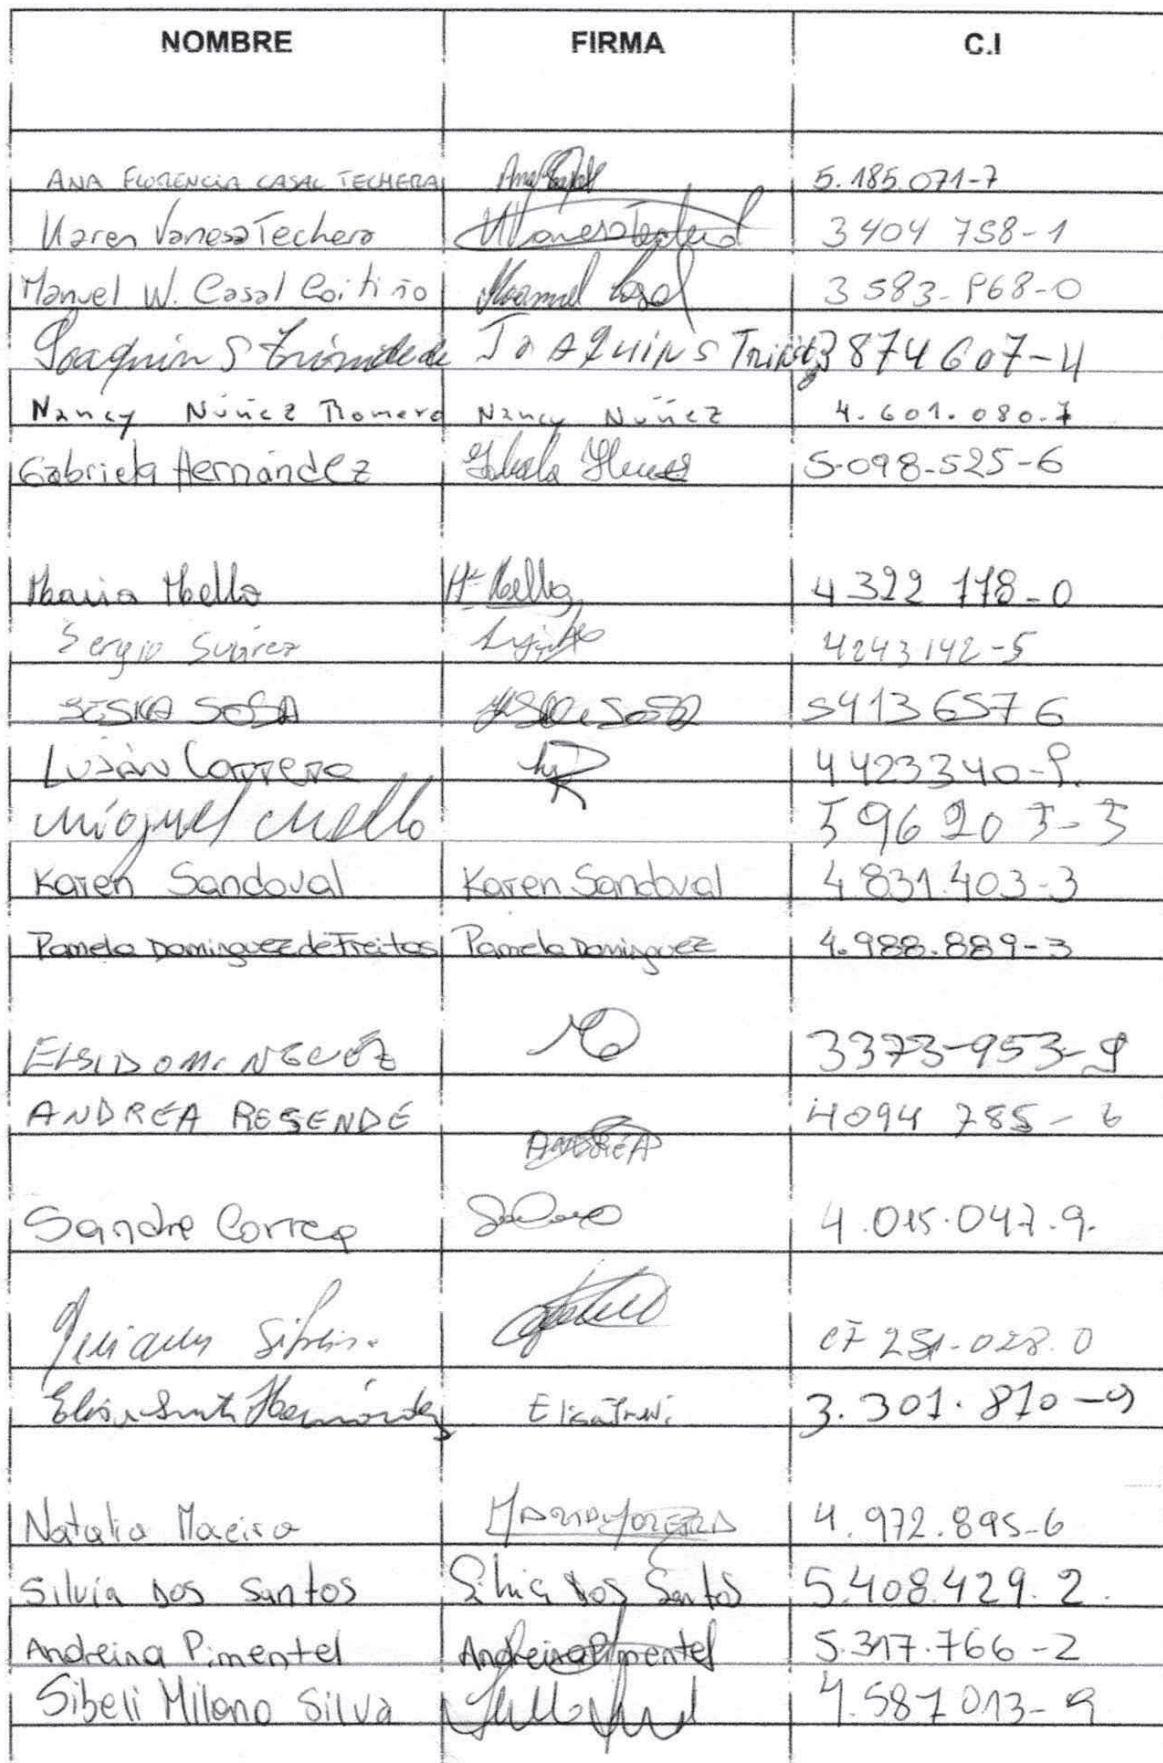 NOMBRE FIRMA C.I
ANA FLORENCIA CASAL TECHERA 5.185.071-7
Karen Vanesa Techera Vanesa Techera 3404 758-1
Manuel W. Casal Coitiño Manuel Casal 3583-968-0
Joaquin S Trinidade JOAQUIN S 3874607-4
Nancy Núñez Romero Nancy Núñez 4.601.080-7
Gabriela Hernández 5-098-525-6
Maria Mello Mª Mello 4322 118-0
Sergio Suárez 4243142-5
SOSA 54136576
Luján Correro 4423340-9
Miguel Cuello 596203-3
Karen Sandoval Karen Sandoval 4.831.403-3
Pamela Dominguez de Freitas Pamela Dominguez 4.988.889-3
ELSI DOMINGUEZ 3373-953-9
ANDREA RESENDE ANDREA 4094 785-6
Sandra Correa 4.015.047.9.
Silveira
Elisa Hernández 3.301.810-9
Natalia Macira 4.972.895-6
Silvia Dos Santos Silvia Dos Santos 5.408.429.2.
Andreina Pimentel Andreina Pimentel 5.317.766-2
Sibeli Milano Silva 4.587.013-9